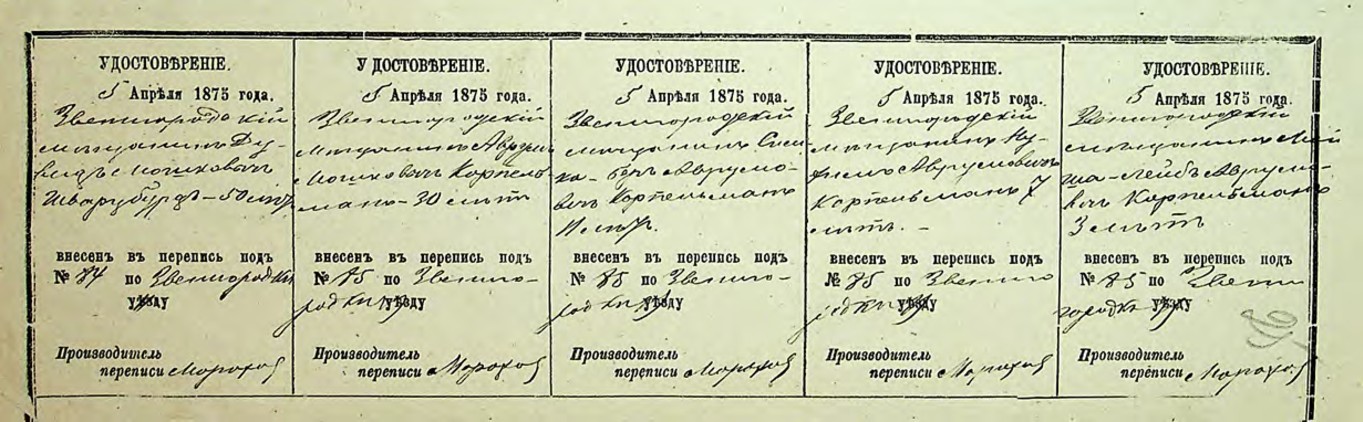 УДОСТОВѢРЕНІЕ.
5 Апрѣля 1875 года.
Звенигородскій
мѣщанинъ Ду-
видъ Мошковичъ
Шварцбурдъ - 50 лѣтъ
внесенъ въ перепись подъ
№ 84 по Звенигородкѣ
уѣзду
Производитель
переписи
УДОСТОВѢРЕНІЕ.
5 Апрѣля 1875 года.
Звенигородскій
мѣщанинъ Аврумъ
Мошковичъ Корпель-
манъ - 30 лѣтъ
внесенъ въ перепись подъ
№ 85 по Звениго-
родкѣ уѣзду
Производитель
переписи
УДОСТОВѢРЕНІЕ.
5 Апрѣля 1875 года.
Звенигородскій
мѣщанинъ
Аврумо-
вичъ Корпельманъ
11 лѣтъ.
внесенъ въ перепись подъ
№ 85 по Звениго-
родкѣ уѣзду
Производитель
переписи
УДОСТОВѢРЕНІЕ.
5 Апрѣля 1875 года.
Звенигородскій
мѣщанинъ Ну-
химъ Аврумовичъ
Корпельманъ 7
лѣтъ. -
внесенъ въ перепись подъ
№ 85 по Звениго
родкѣ уѣзду
Производитель
переписи
УДОСТОВѢРЕНІЕ.
5 Апрѣля 1875 года.
Звенигородскій
мѣщанинъ Мой
ша-Лейбъ Аврумо-
вичъ Корпельманъ
3 лѣтъ
внесенъ въ перепись подъ
№ 85 по Звени
городкѣ уѣзду
Производитель
переписи